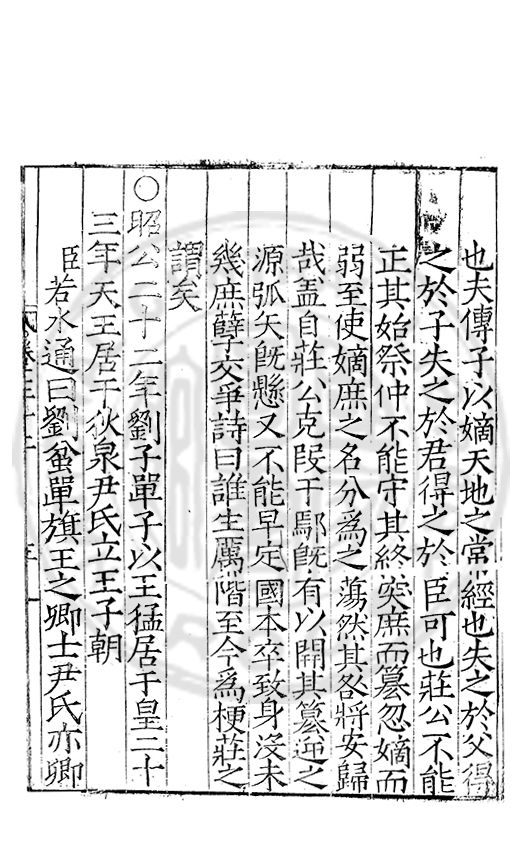 也夫傳子以嫡天地之常經也失之於父得
之於子失之於君得之於臣可也莊公不能
正其始祭仲不能守其終突庶而簒忽嫡而
弱至使嫡庶之名分爲之蕩然其咎將安歸
哉盖自莊公克段于鄢旣有以開其簒逆之
源弧矢旣懸又不能早定國本卒致身沒未
幾庶孽交爭詩曰誰生厲階至今爲梗莊之
謂矣
○昭公二十二年劉子單子以王猛居于皇二十
三年天王居于狄泉尹氏立王子朝
臣若水通曰劉蚠單旗王之卿士尹氏亦卿